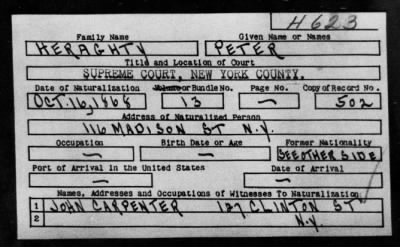 H623
Family Name Given Name or Names
HERAGHTY PETER
Title and Location of Court
SUPREME COURT, NEW YORK COUNTY.
Date of Naturalization Volume or Bundle No. Page No. Copy of Record No.
OCT. 16, 1868 13 — 502
Address of Naturalized Person
116 MADISON ST N.Y.
Occupation Birth Date or Age Former Nationality
— — SEE OTHER SIDE
Port of Arrival in the United States Date of Arrival
— —
Names, Addresses and Occupations of Witnesses To Naturalization
1 JOHN CARPENTER 127 CLINTON ST
2 N.Y.